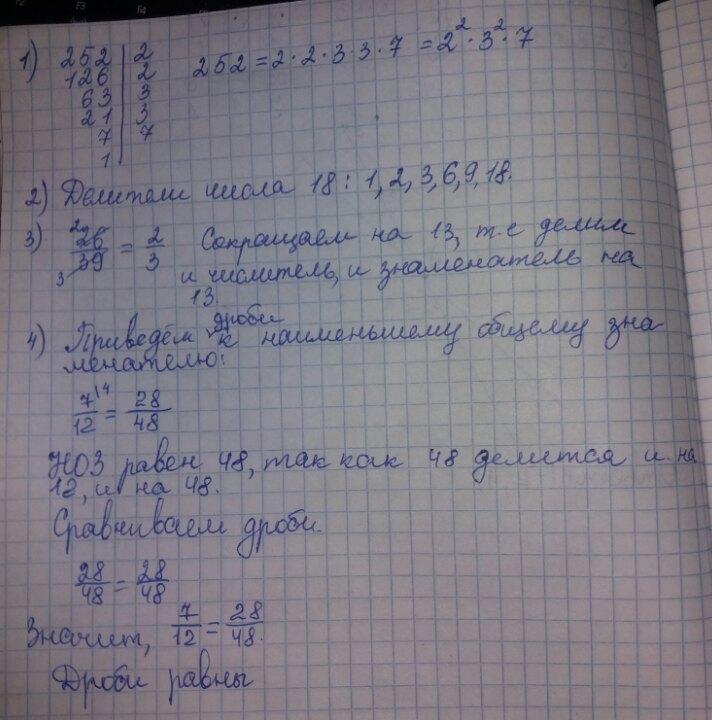 1) 252 | 2   252 = 2 · 2 · 3 · 3 · 7 = 2² · 3² · 7
126 | 2
63 | 3
21 | 3
7 | 7
1
2) Делители числа 18 : 1, 2, 3, 6, 9, 18.
3) ²26/₃39 = 2/3 Сокращаем на 13, т.е делим
и числитель, и знаменатель на
13.
4) Приведём дроби к наименьшему общему зна-
менателю:
7\4/12 = 28/48
НОЗ равен 48, так как 48 делится и на
12, и на 48.
Сравниваем дроби.
28/48 = 28/48
Значит, 7/12 = 28/48.
Дроби равны